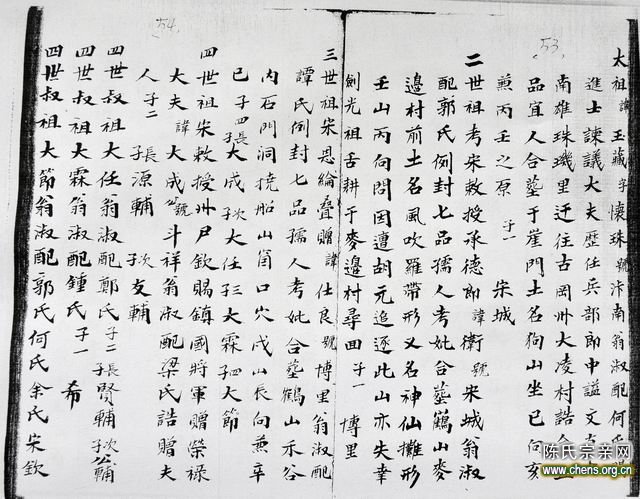 53
太祖諱玉藏字懷珠號汴南翁淑配何氏
進士諫議大夫歷任兵部郎中謚文
南雄珠璣里迁往古岡州大凌村誥
品宜人合塟于崖門土名狗山坐巳向亥
兼丙壬之原 子一 宋城
二世祖考宋敕授承德郎諱衛號宋城翁淑
配郭氏例封七品孺人考妣合塟鶴山麥
邊村前土名風吹羅帶形又名神仙攤形
壬山丙向問因遭胡元追逐此山亦失幸
劍光祖舌耕于麥邊村尋回 子一 博里
54
三世祖宋恩綸叠贈諱仕良號博里翁淑配
譚氏例封七品孺人考妣合塟鶴山禾谷
內石門洞撓船山笝口穴戌山辰向兼辛
巳 子四 長大成 次大任 三大霖 四大節
四世祖宋敕授州尹欽賜鎮國將軍贈榮祿
大夫諱大成號斗祥翁淑配梁氏誥贈夫
人 子二 長源輔 次友輔
四世叔祖大任翁淑配鄭氏 子二 長賢輔 次公輔
四世叔祖大霖翁淑配鍾氏 子一 希
四世叔祖大節翁淑配郭氏何氏余氏宋欽
陈氏宗亲网
www.chens.org.cn